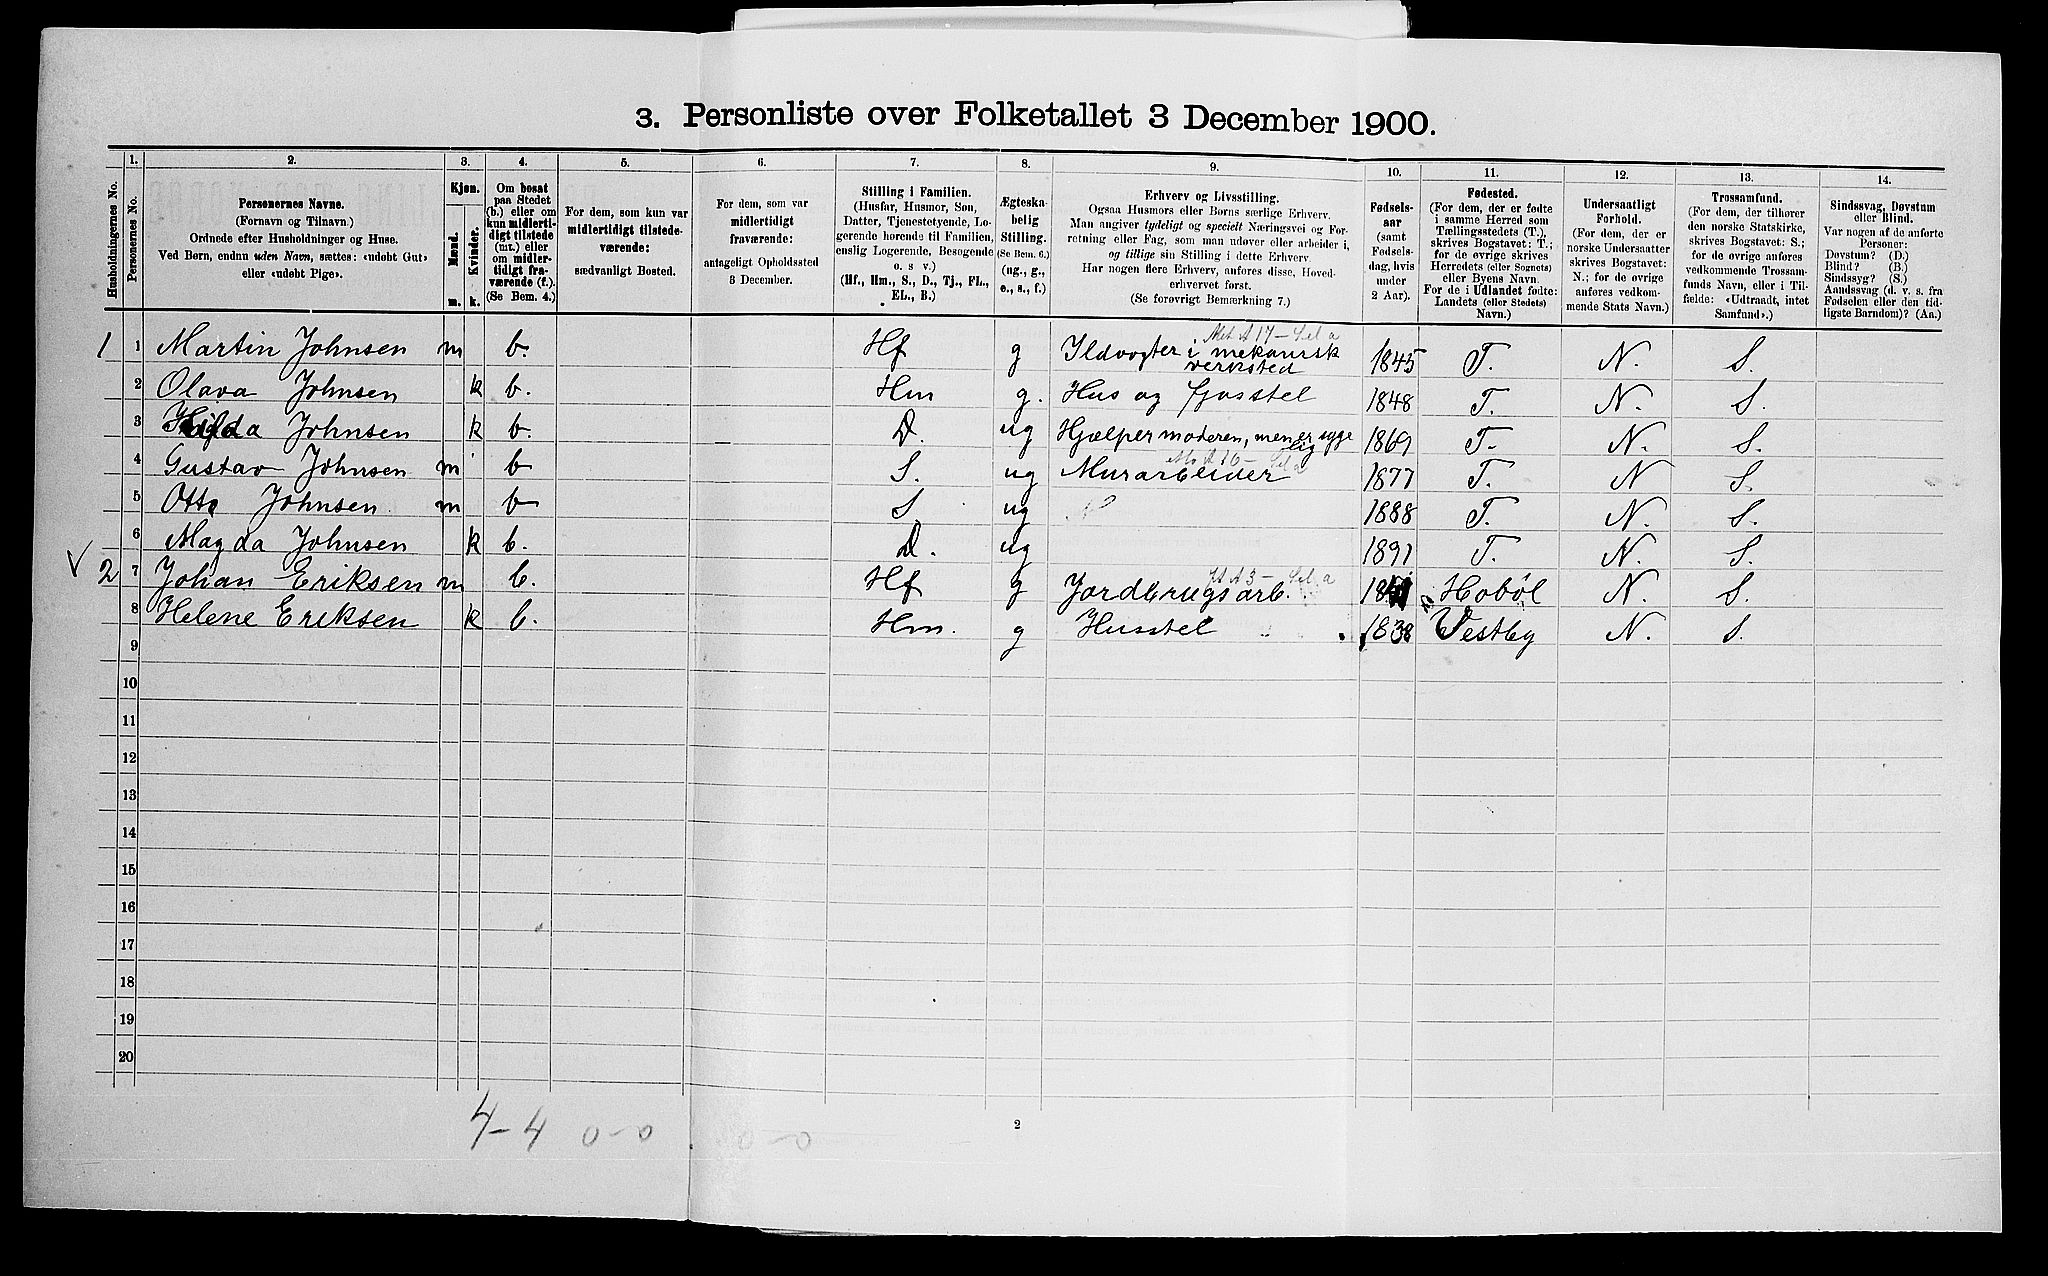 3. Personliste over Folketallet 3 December 1900.
1. 2. 3. 4. 5. 6. 7. 8. 9. 10. 11. 12. 13. 14.
Husholdningernes No.
Personernes No.
Personernes Navne.
(Fornavn og Tilnavn.)
Ordnede efter Husholdninger og Huse.
Ved Børn, endnu uden Navn, sættes: «udøbt Gut»
eller «udøbt Pige».
Kjøn.
Mænd.
Kvinder.
m. k.
Om bosat
paa Stedet
(b.) eller om
kun midlerti-
digt tilstede
(mt.) eller
om midler-
tidigt fra-
værende (f.).
(Se Bem. 4.)
For dem, som kun var
midlertidigt tilstede-
værende:
sædvanligt Bosted.
For dem, som var
midlertidigt
fraværende:
antageligt Opholdssted
3 December.
Stilling i Familien.
(Husfar, Husmor, Søn,
Datter, Tjenestetyende, Lo-
gerende hørende til Familien,
enslig Logerende, Besøgende
o. s v.)
(Hf., Hm., S., D., Tj., FL.,
EL., B.)
Ægteska-
belig
Stilling.
(Se Bem. 6.)
(ug., g.,
e., s., f.)
Erhverv og Livsstilling.
Ogsaa Husmors eller Børns særlige Erhverv.
Man angiver tydeligt og specielt Næringsvei og For-
retning eller Fag, som man udøver eller arbeider i,
og tillige sin Stilling i dette Erhverv.
Har nogen flere Erhverv, anføres disse, Hoved-
erhvervet først.
(Se forøvrigt Bemærkning 7.)
Fødsels-
aar
(samt
Fødsels-
dag, hvis
under
2 Aar).
Fødested.
(For dem, der er fødte
i samme Herred som
Tællingsstedets (T.),
skrives Bogstavet: T.;
for de øvrige skrives
Herredets (eller Sognets)
eller Byens Navn.
For de i Udlandet fødte:
Landets (eller Stedets)
Navn.)
Undersaatligt
Forhold.
(For dem, der er
norske Undersaatter
skrives Bogstavet:
N.; for de øvrige
anføres vedkom-
mende Stats Navn.)
Trossamfund.
(For dem, der tilhører
den norske Statskirke,
skrives Bogstavet: S.;
for de øvrige anføres
vedkommende Trossam-
funds Navn, eller i Til-
fælde: «Udtraadt, intet
Samfund».)
Sindssvag, Døvstum
eller Blind.
Var nogen af de anførte
Personer:
Døvstum? (D.)
Blind? (B.)
Sindssyg? (S.)
Aandssvag (d. v. s. fra
Fødselen eller den tid-
ligste Barndom)? (Aa.)
1 1 Martin Johnsen m b. Hf g Ildvogter i mekanisk verksted 1845 T. N. S.
2 Olava Johnsen k b. Hm g. Hus og fjøsstel 1848 T. N. S.
3 Hilda Johnsen k b. D. ug Hjælper moderen, men er sygelig 1869 T. N. S.
4 Gustav Johnsen m b S. ug Murarbeider 1877 T. N S.
5 Otto Johnsen m b S ug 1888 T. N. S.
6 Magda Johnsen k b. D. ug 1891 T. N. S.
√ 2 7 Johan Eriksen m b. Hf g Jordbrugsarb. Hobøl N. S.
8 Helene Eriksen k b. Hm. g Husstel 1838 Vestby N. S.
9
10
11
12
13
14
15
16
17
18
19
20
4-4 0-0 0-0
2